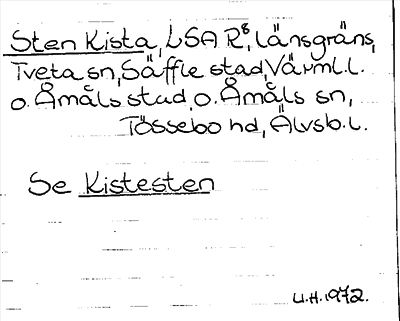 Sten Kista, LSA R⁸, länsgräns,
Tveta sn, Säffle stad, Värml.l.
o. Åmåls stad, o. Åmåls sn,
Tössebo hd, Älvsb.l.
Se Kistesten
U.H. 1972.